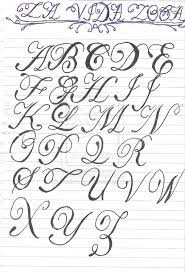 LA VIDA LOCA
A B C D E
F G H I J
K L M N
O P Q R
S T U V W
X Y Z